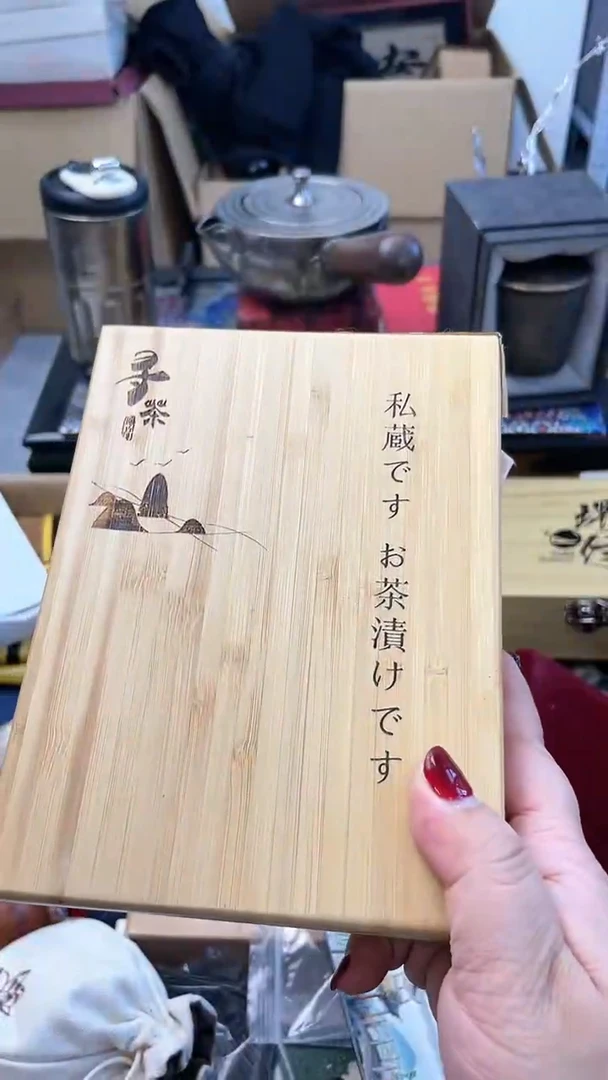 私蔵です お茶漬けです
茶